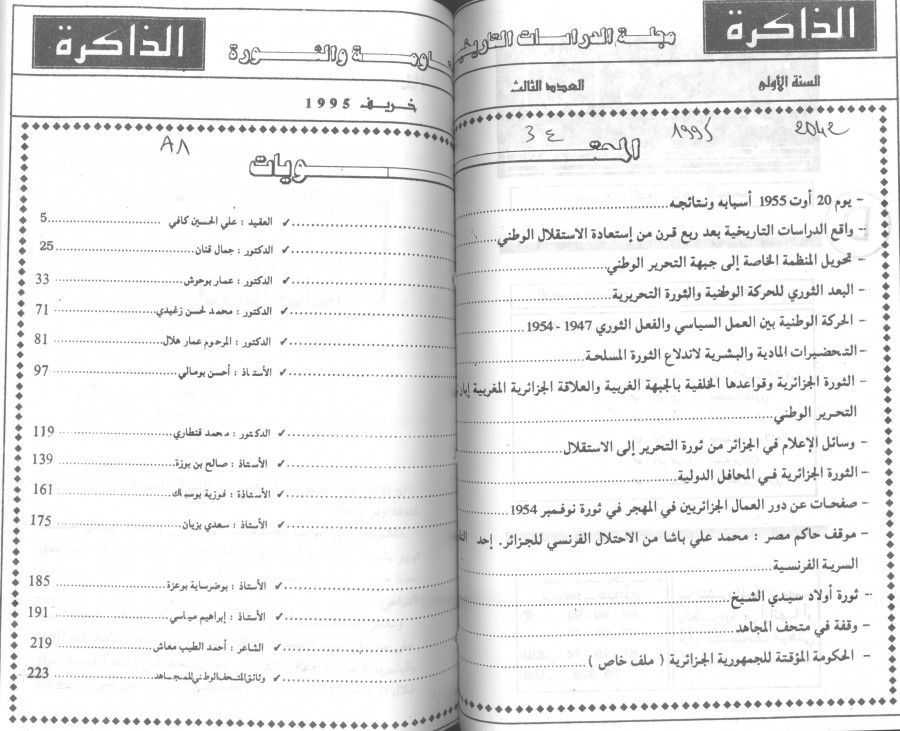 الذاكرة
الذاكرة
مجلة الدراسات التاريخية
ـاومـة والثـورة
السنة الأولى العدد الثالث
خريف 1995
2042 1995 34
A1
المحتـــويات
– يوم 20 أوت 1955 أسبابه ونتائجه ✓ العقيد : علي الحسين كافي 5
– واقع الدراسات التاريخية بعد ربع قرن من إستعادة الاستقلال الوطني ✓ الدكتور : جمال قنان 25
– تحويل المنظمة الخاصة إلى جبهة التحرير الوطني ✓ الدكتور : عمار بوحوش 33
– البعد الثوري للحركة الوطنية والثورة التحريرية ✓ الدكتور : محمد لحسن زغيدي 71
– الحركة الوطنية بين العمل السياسي والفعل الثوري 1947 - 1954 ✓ الدكتور : المرحوم عمار هلال 81
– التحضيرات المادية والبشرية لاندلاع الثورة المسلحة ✓ الأستاذ : أحسن بومالي 97
– الثورة الجزائرية وقواعدها الخلفية بالجبهة الغربية والعلاقة الجزائرية المغربية إبان
التحرير الوطني ✓ الدكتور : محمد قنطاري 119
– وسائل الإعلام في الجزائر من ثورة التحرير إلى الاستقلال ✓ الأستاذ : صالح بن بوزة 139
– الثورة الجزائرية في المحافل الدولية ✓ الأستاذة : فوزية بوسباك 161
– صفحات عن دور العمال الجزائريين في المهجر في ثورة نوفمبر 1954 ✓ الأستاذ : سعدي بزيان 175
– موقف حاكم مصر : محمد علي باشا من الاحتلال الفرنسي للجزائر. إحد
السرية الفرنسية ✓ الأستاذ : بوضرساية بوعزة 185
– ثورة أولاد سيدي الشيخ ✓ الأستاذ : إبراهيم مياسي 191
– وقفة في متحف المجاهد ✓ الشاعر : أحمد الطيب معاش 219
– الحكومة المؤقتة للجمهورية الجزائرية ( ملف خاص ) ✓ وثائق المتحف الوطني للمجاهد 223